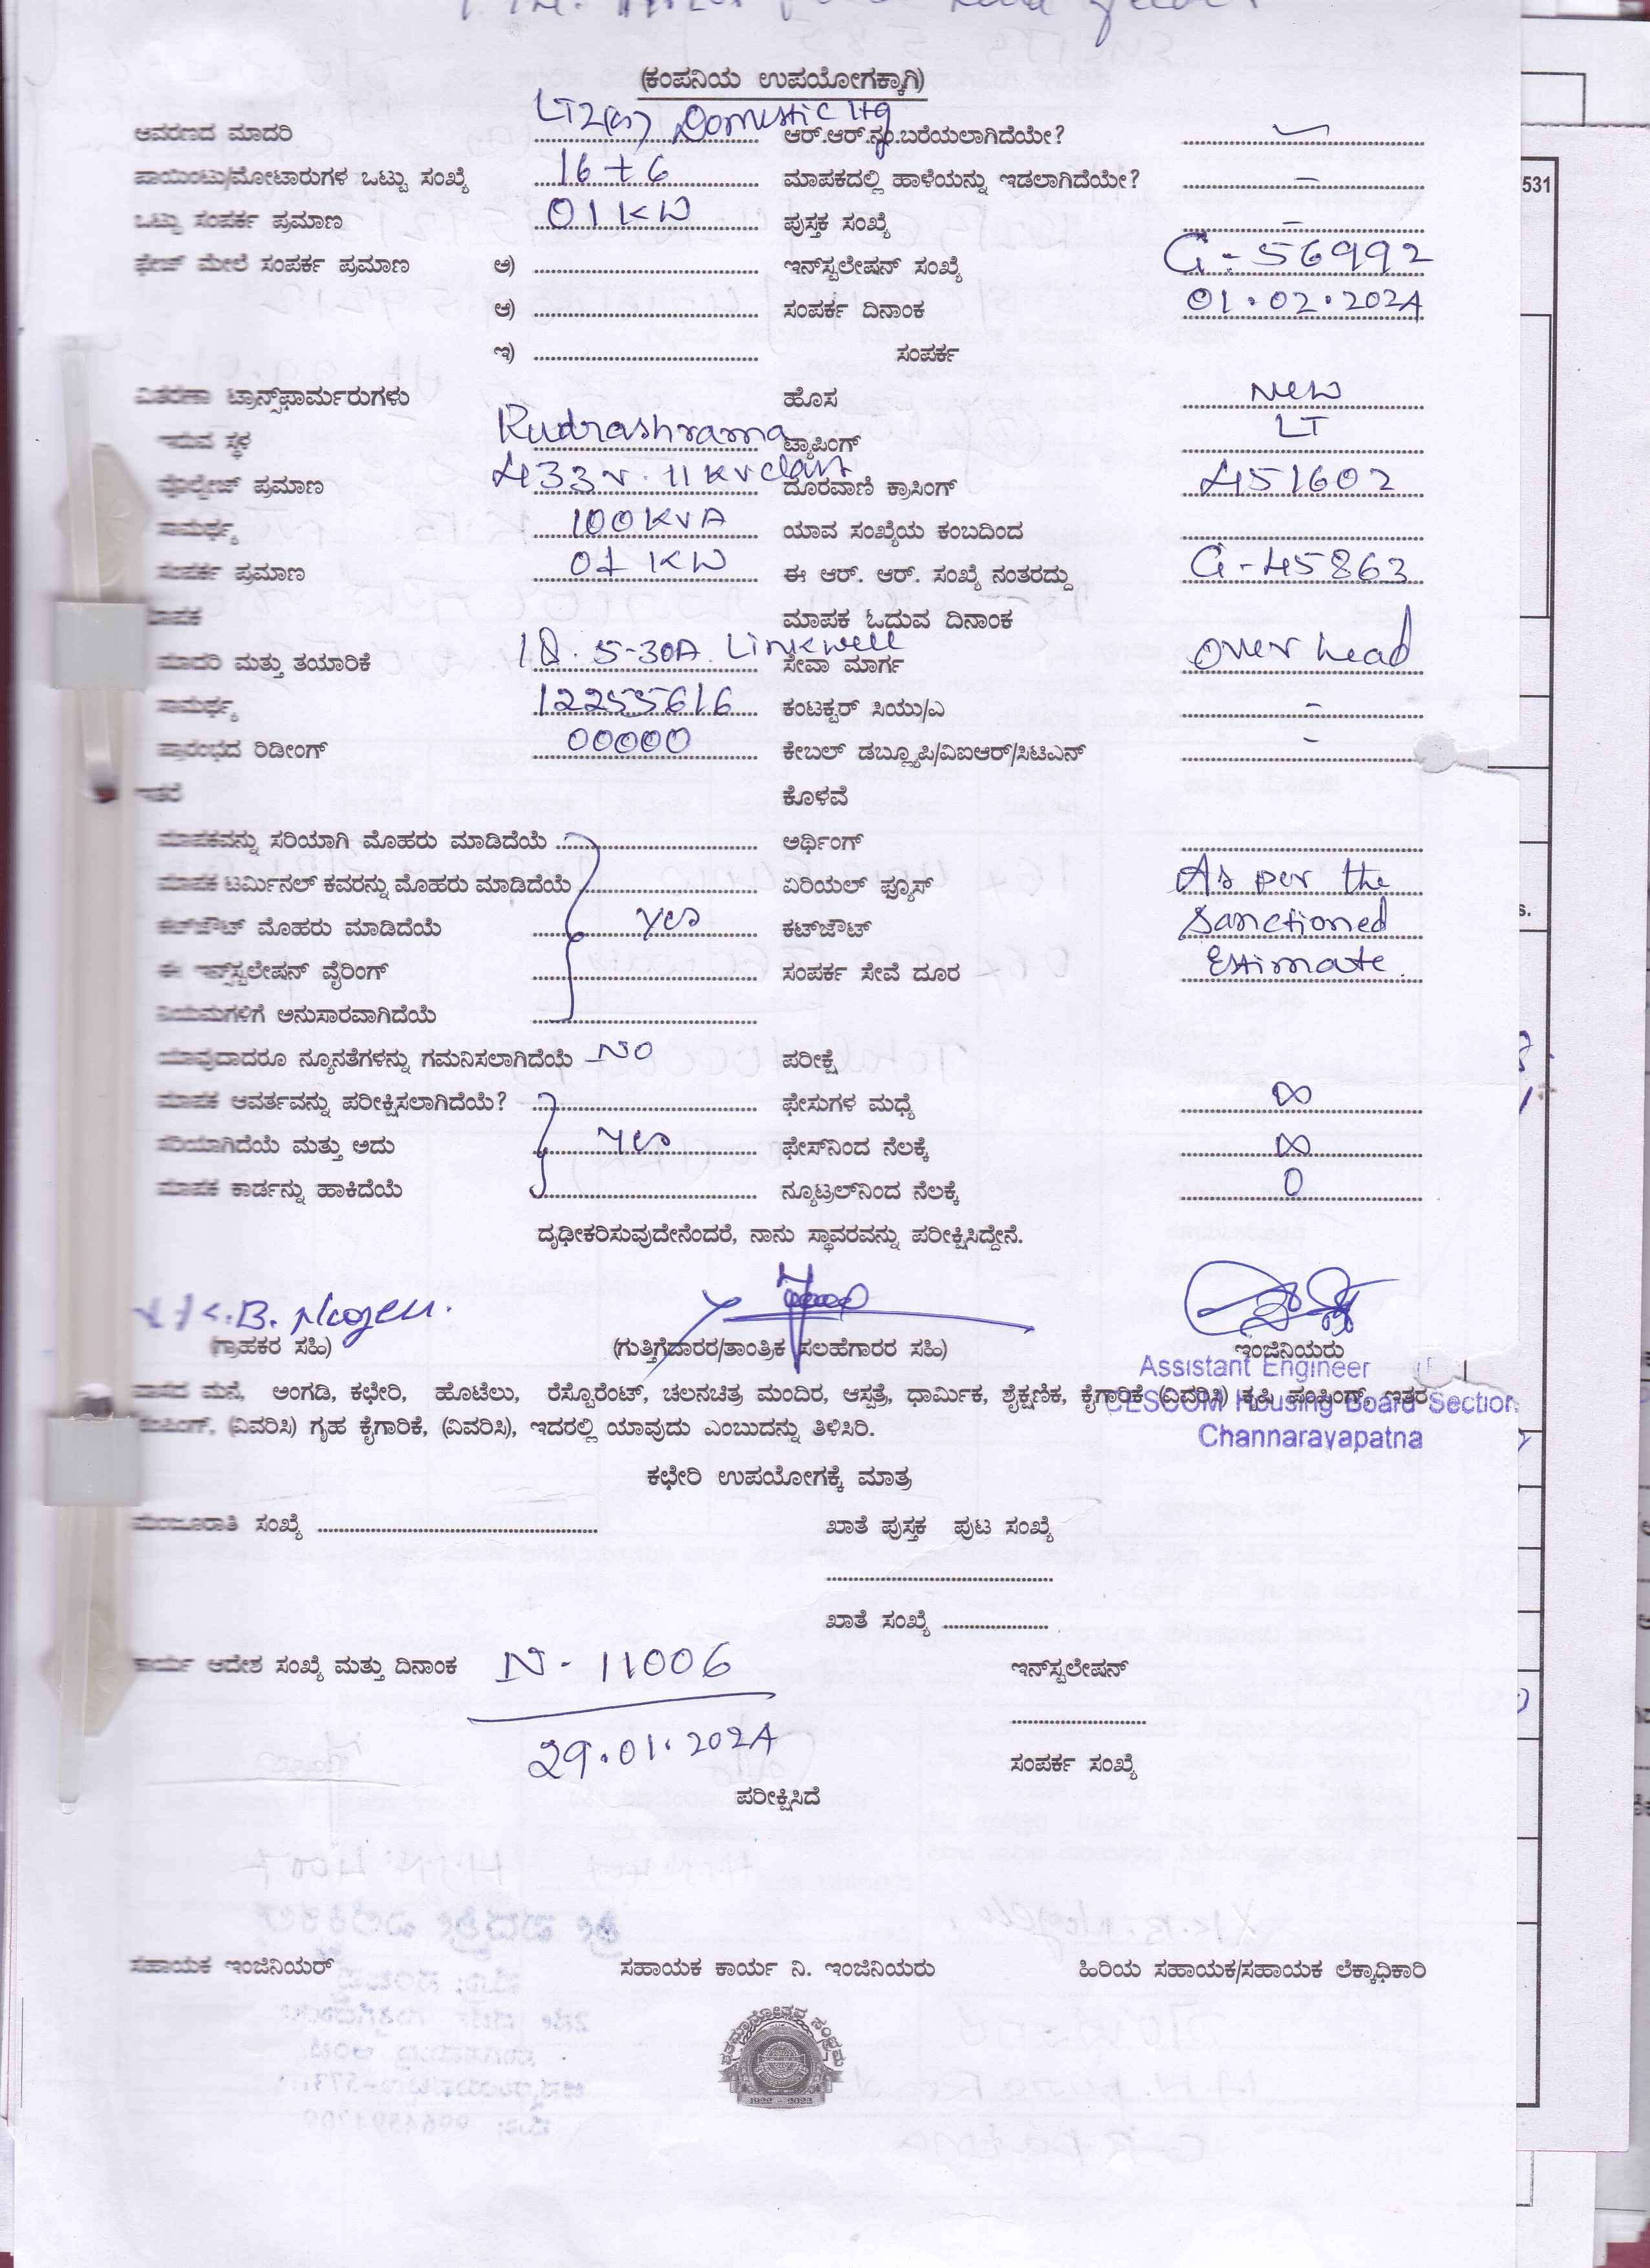 (ಕಂಪನಿಯ ಉಪಯೋಗಕ್ಕಾಗಿ)
ಆವರಣದ ಮಾದರಿ LT2(a) Domestic ltg ಆರ್.ಆರ್.ನಂ.ಬರೆಯಲಾಗಿದೆಯೇ?
ಪಾಯಿಂಟು/ಮೋಟಾರುಗಳ ಒಟ್ಟು ಸಂಖ್ಯೆ 16+6 ಮಾಪಕದಲ್ಲಿ ಹಾಳೆಯನ್ನು ಇಡಲಾಗಿದೆಯೇ? –
ಒಟ್ಟು ಸಂಪರ್ಕ ಪ್ರಮಾಣ 01 KW ಪುಸ್ತಕ ಸಂಖ್ಯೆ –
ಫೇಜ್ ಮೇಲೆ ಸಂಪರ್ಕ ಪ್ರಮಾಣ ಅ) ಇನ್‌ಸ್ಟಲೇಷನ್ ಸಂಖ್ಯೆ G-56992
ಆ) ಸಂಪರ್ಕ ದಿನಾಂಕ 01.02.2024
ಇ) ಸಂಪರ್ಕ
ವಿತರಣಾ ಟ್ರಾನ್ಸ್‌ಫಾರ್ಮರುಗಳು ಹೊಸ New
ಇರುವ ಸ್ಥಳ Rudrashrama ಟ್ಯಾಪಿಂಗ್ LT
ವೋಲ್ಟೇಜ್ ಪ್ರಮಾಣ 433v. 11 KV class ದೂರವಾಣಿ ಕ್ರಾಸಿಂಗ್ 451602
ಸಾಮರ್ಥ್ಯ 100 KVA ಯಾವ ಸಂಖ್ಯೆಯ ಕಂಬದಿಂದ
ಸಂಪರ್ಕ ಪ್ರಮಾಣ 01 KW ಈ ಆರ್. ಆರ್. ಸಂಖ್ಯೆ ನಂತರದ್ದು G-45863
ಮಾಪಕ ಮಾಪಕ ಓದುವ ದಿನಾಂಕ
ಮಾದರಿ ಮತ್ತು ತಯಾರಿಕೆ 1Ø. 5-30A. Linkwell ಸೇವಾ ಮಾರ್ಗ over head
ಸಾಮರ್ಥ್ಯ 12255616 ಕಂಟಕ್ಟರ್ ಸಿಯು/ಎ –
ಪ್ರಾರಂಭದ ರಿಡೀಂಗ್ 00000 ಕೇಬಲ್ ಡಬ್ಲ್ಯೂಪಿ/ವಿಐಆರ್/ಸಿಟಿಎನ್ –
ಇತರೆ ಕೊಳವೆ
ಮಾಪಕವನ್ನು ಸರಿಯಾಗಿ ಮೊಹರು ಮಾಡಿದೆಯೆ ಅರ್ಥಿಂಗ್
ಮಾಪಕ ಟರ್ಮಿನಲ್ ಕವರನ್ನು ಮೊಹರು ಮಾಡಿದೆಯೆ ಏರಿಯಲ್ ಫ್ಯೂಸ್ As per the
ಕಟ್‌ಔಟ್ ಮೊಹರು ಮಾಡಿದೆಯೆ yes ಕಟ್‌ಔಟ್ Sanctioned
ಈ ಇನ್‌ಸ್ಟಲೇಷನ್ ವೈರಿಂಗ್ ಸಂಪರ್ಕ ಸೇವೆ ದೂರ Estimate.
ನಿಯಮಗಳಿಗೆ ಅನುಸಾರವಾಗಿದೆಯೆ
ಯಾವುದಾದರೂ ನ್ಯೂನತೆಗಳನ್ನು ಗಮನಿಸಲಾಗಿದೆಯೆ NO ಪರೀಕ್ಷೆ
ಮಾಪಕ ಆವರ್ತವನ್ನು ಪರೀಕ್ಷಿಸಲಾಗಿದೆಯೆ? ಫೇಸುಗಳ ಮಧ್ಯೆ ∞
ಸರಿಯಾಗಿದೆಯೆ ಮತ್ತು ಅದು yes ಫೇಸ್‌ನಿಂದ ನೆಲಕ್ಕೆ ∞
ಮಾಪಕ ಕಾರ್ಡನ್ನು ಹಾಕಿದೆಯೆ ನ್ಯೂಟ್ರಲ್‌ನಿಂದ ನೆಲಕ್ಕೆ 0
ದೃಢೀಕರಿಸುವುದೇನೆಂದರೆ, ನಾನು ಸ್ಥಾವರವನ್ನು ಪರೀಕ್ಷಿಸಿದ್ದೇನೆ.
(ಗ್ರಾಹಕರ ಸಹಿ) (ಗುತ್ತಿಗೆದಾರರ/ತಾಂತ್ರಿಕ ಸಲಹೆಗಾರರ ಸಹಿ) ಇಂಜಿನಿಯರು
Assistant Engineer
ವಾಸದ ಮನೆ, ಅಂಗಡಿ, ಕಛೇರಿ, ಹೊಟೆಲು, ರೆಸ್ಟೊರೆಂಟ್, ಚಲನಚಿತ್ರ ಮಂದಿರ, ಆಸ್ಪತ್ರೆ, ಧಾರ್ಮಿಕ, ಶೈಕ್ಷಣಿಕ, ಕೈಗಾರಿಕೆ (ವಿವರಿಸಿ) ಕೃಷಿ ಪಂಪಿಂಗ್, ಇತರ
CESCOM Housing Board Section
ಪಂಪಿಂಗ್, (ವಿವರಿಸಿ) ಗೃಹ ಕೈಗಾರಿಕೆ, (ವಿವರಿಸಿ), ಇದರಲ್ಲಿ ಯಾವುದು ಎಂಬುದನ್ನು ತಿಳಿಸಿರಿ.
Channarayapatna
ಕಛೇರಿ ಉಪಯೋಗಕ್ಕೆ ಮಾತ್ರ
ಮಂಜೂರಾತಿ ಸಂಖ್ಯೆ ಖಾತೆ ಪುಸ್ತಕ ಪುಟ ಸಂಖ್ಯೆ
ಖಾತೆ ಸಂಖ್ಯೆ
ಕಾರ್ಯ ಆದೇಶ ಸಂಖ್ಯೆ ಮತ್ತು ದಿನಾಂಕ N-11006 ಇನ್‌ಸ್ಟಲೇಷನ್
29.01.2024
ಸಂಪರ್ಕ ಸಂಖ್ಯೆ
ಪರೀಕ್ಷಿಸಿದೆ
ಸಹಾಯಕ ಇಂಜಿನಿಯರ್ ಸಹಾಯಕ ಕಾರ್ಯ ನಿ. ಇಂಜಿನಿಯರು ಹಿರಿಯ ಸಹಾಯಕ/ಸಹಾಯಕ ಲೆಕ್ಕಾಧಿಕಾರಿ
ಶತಮಾನೋತ್ಸವ ಸಂಭ್ರಮ
1922 - 2023
531